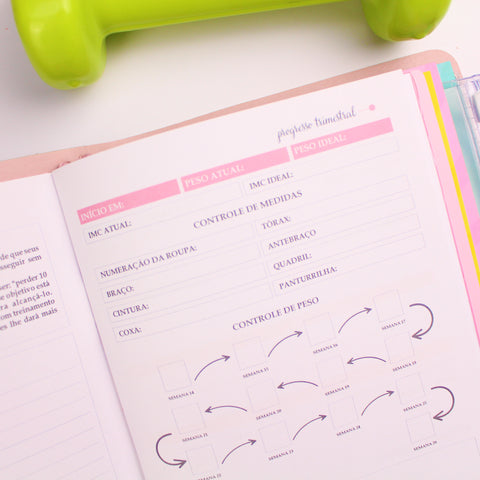 de que seus
seguir sem
"perder 10
objetivo está
alcançá-lo.
treinamento
lhe dará mais
progresso trimestral
INÍCIO EM: PESO ATUAL: PESO IDEAL:
IMC ATUAL: IMC IDEAL:
CONTROLE DE MEDIDAS
NUMERAÇÃO DA ROUPA: TÓRAX:
BRAÇO: ANTEBRAÇO
CINTURA: QUADRIL:
COXA: PANTURRILHA:
CONTROLE DE PESO
SEMANA 14 SEMANA 15 SEMANA 16 SEMANA 17
SEMANA 21 SEMANA 20 SEMANA 19 SEMANA 18
SEMANA 22 SEMANA 23 SEMANA 24 SEMANA 25
SEMANA 26